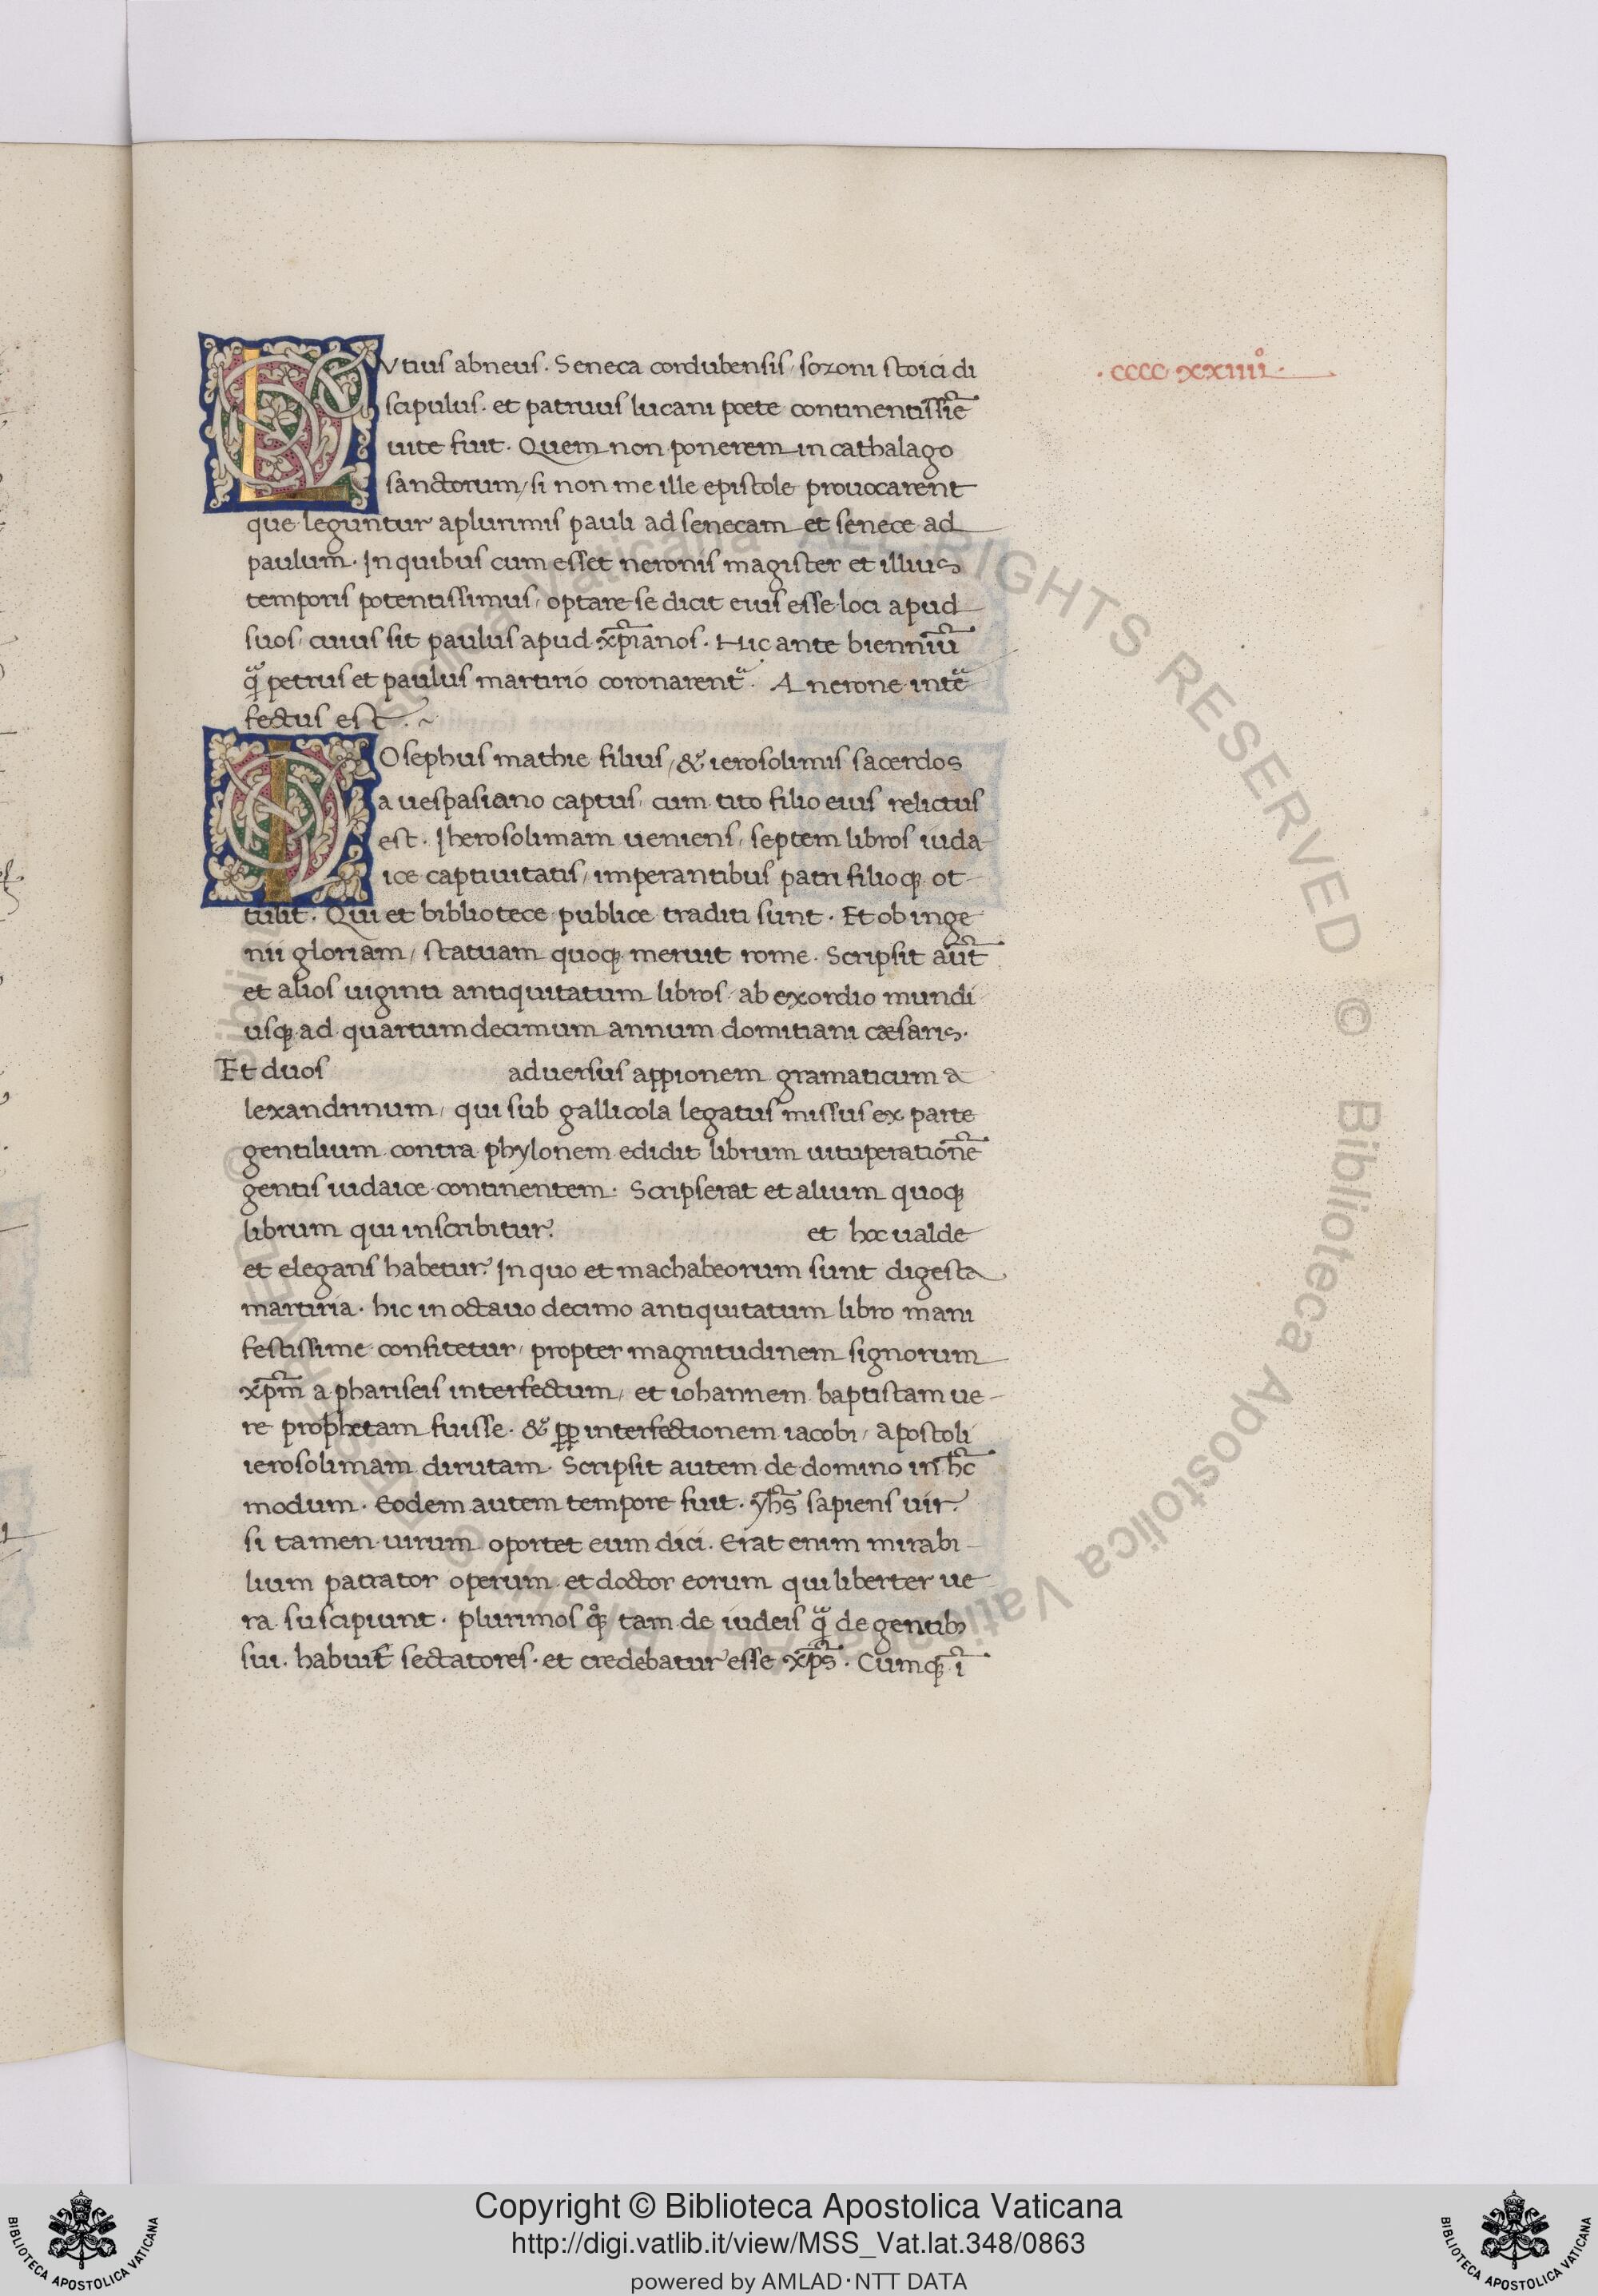 .CCCC.XXIIII°.
Lutius abneus. Seneca cordubensis, sozoni stoici di
scipulus. et patruus lucani poete continentissīe
uite fuit. Quem non ponerem in cathalago
sanctorum, si non me ille epistole prouocarent
que leguntur a plurimis pauli ad senecam et senece ad
paulum. In quibus cum esset neronis magister et illius
temporis potentissimus, optare se dicit eius esse loci apud
suos, cuius sit paulus apud xp̄ianos. Hic ante bienniū
q̃ petrus et paulus martirio coronarent᷑. A nerone int᷑e
fectus est. ~
Iosephus mathie filius, & ierosolimis sacerdos
a uespasiano captus, cum tito filio eius relictus
est. Iherosolimam ueniens, septem libros iuda-
ice captiuitatis, imperantibus patri filioq; ot-
tulit. Qui et bibliotece publice traditi sunt. Et ob inge
nii gloriam, statuam quoq; meruit rome. Scripsit aūt
et alios uiginti antiquitatum libros, ab exordio mundi
usq; ad quartumdecimum annum domitiani cæsaris.
Et duos aduersus appionem gramaticum a
lexandrinum, qui sub gallicola legatus missus ex parte
gentilium contra phylonem edidit librum uituperationē
gentis iudaice continentem. Scripserat et alium quoq;
librum qui inscribitur. et hoc ualde
et elegans habetur. In quo et machabeorum sunt digesta
martiria. hic in octauo decimo antiquitatum libro mani
festissime confitetur, propter magnitudinem signorum
xp̄m a phariseis interfectum, et iohannem baptistam ue-
re prophetam fuisse. & ꝓp interfectionem iacobi, apostoli
ierosolimam dirutam. Scripsit autem de domino in hc̄
modum. Eodem autem tempore fuit. yhs̄ sapiens uir.
si tamen uirum oportet eum dici. Erat enim mirabi-
lium patrator operum et doctor eorum qui libenter ue
ra suscipiunt. plurimos q°q; tam de iudeis q̃ de gentib;
sui. habuit sectatores. et credebatur esse xp̄s. Cumq; ī
Copyright © Biblioteca Apostolica Vaticana
http://digi.vatlib.it/view/MSS_Vat.lat.348/0863
powered by AMLAD·NTT DATA
BIBLIOTECA APOSTOLICA VATICANA
BIBLIOTECA APOSTOLICA VATICANA